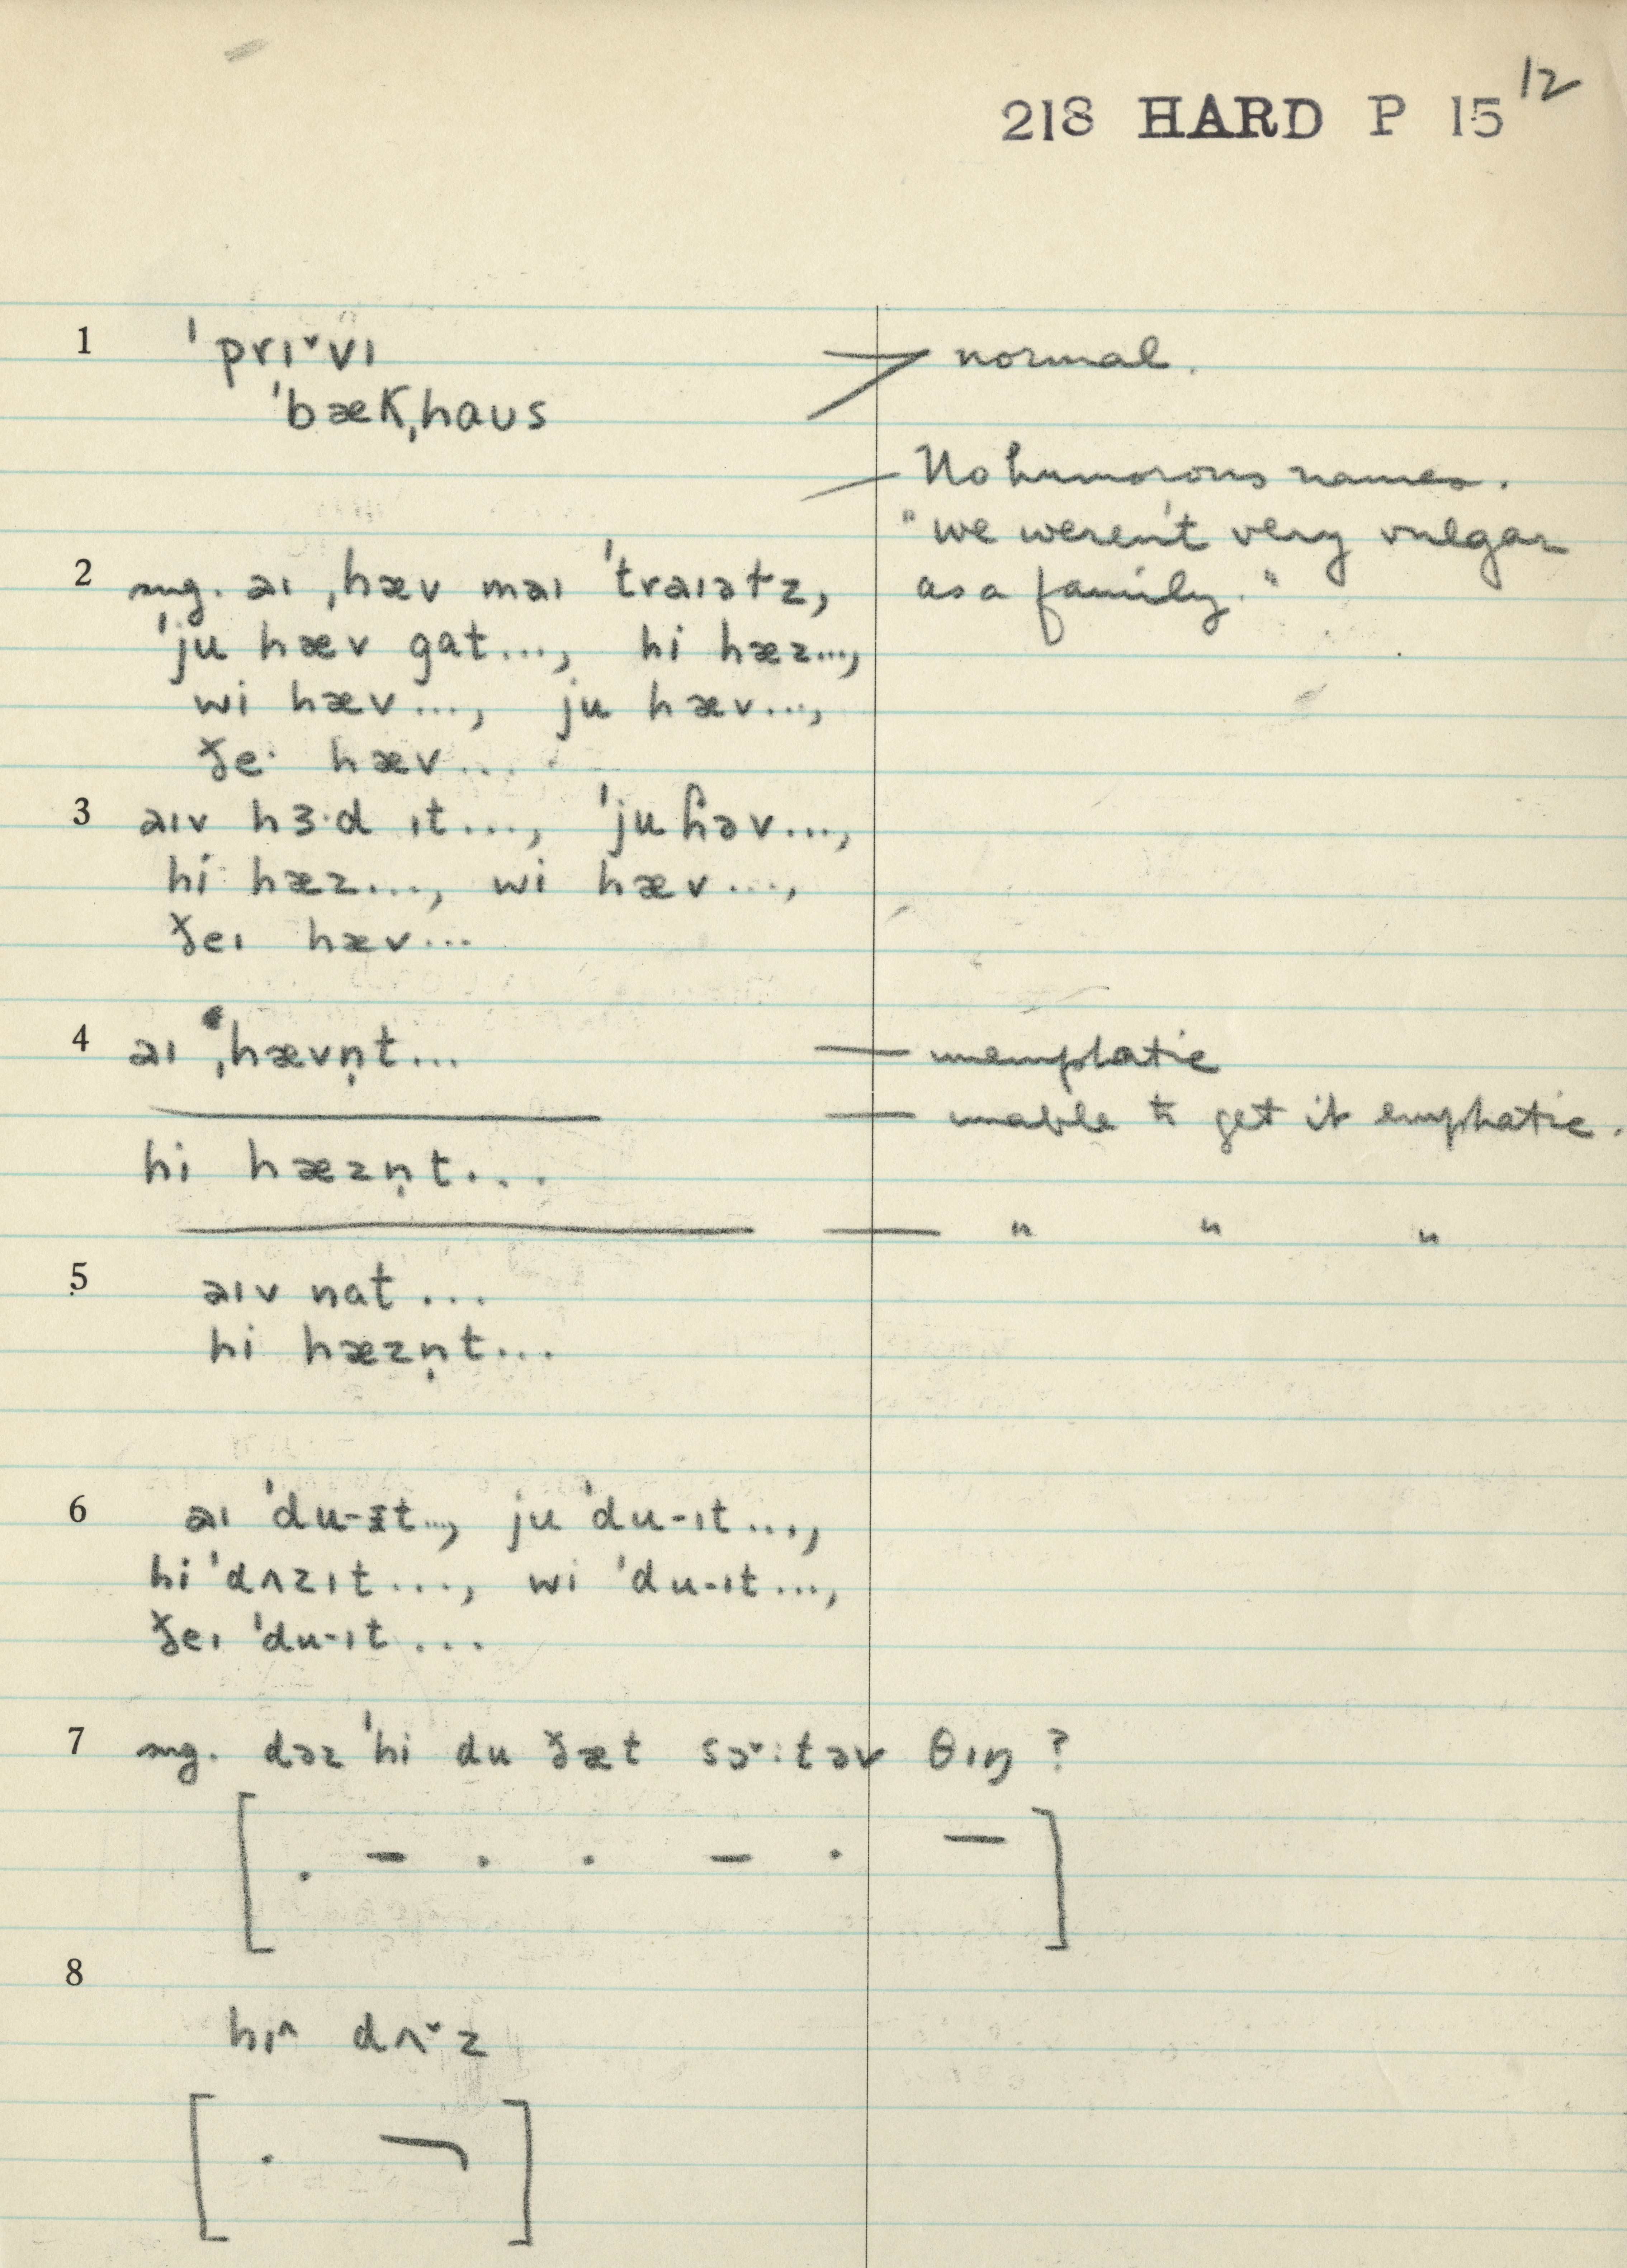 218 HARD P 15 12
1 ˈprɪ˅vɪ normal.
ˈbæKˌhaʊs
No humorous names.
"we weren't very vulgar
as a family."
2 sug. əɪ ˌhæv məɪ ˈtrəɪətz,
ˈju hæv gat..., hi hæz...,
wi hæv..., ju hæv...,
ðe· hæv...
3 əɪv hɜ·d ɪt..., ˈju ɦəv...,
hi hæz..., wi hæv...,
ðeɪ hæv...
4 əɪ ˌhævn̩t... — unemphatic
— unable to get it emphatic.
hi hæzn̩t...
— " " "
5 əɪv nat...
hi hæzn̩t...
6 əɪ ˈdu-ɪt..., ju ˈdu-ɪt...,
hi ˈdʌzɪt..., wi ˈdu-ɪt...,
ðeɪ ˈdu-ɪt...
7 sug. dəz ˈhi du ðæt sɔ˅:təv θɪŋ?
[ . - . . - . — ]
8
hɪ^ dʌ˅z
[ . ¬ ]